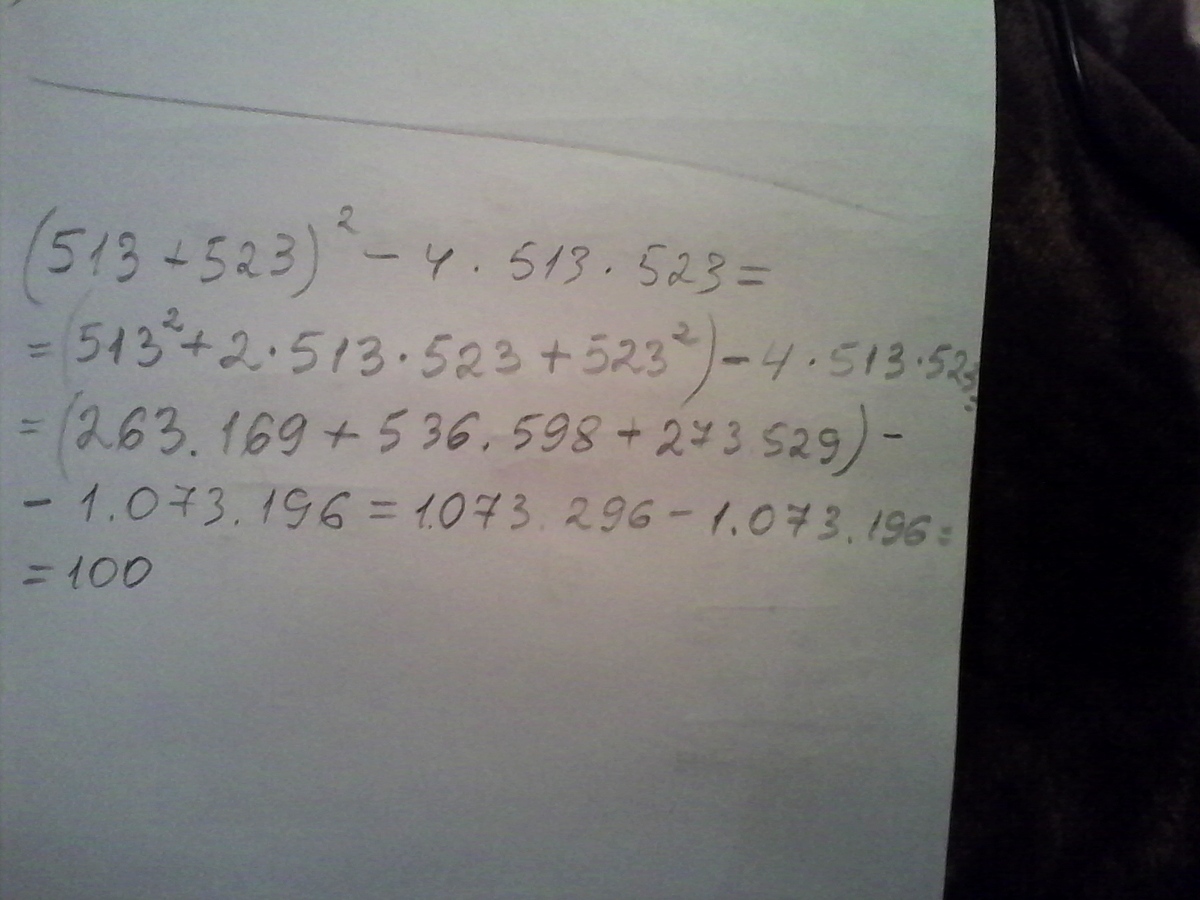 (513+523)² - 4 · 513 · 523 =
= (513² + 2 · 513 · 523 + 523²) - 4 · 513 · 523 =
= (263.169 + 536.598 + 273.529) -
- 1.073.196 = 1.073.296 - 1.073.196 =
= 100